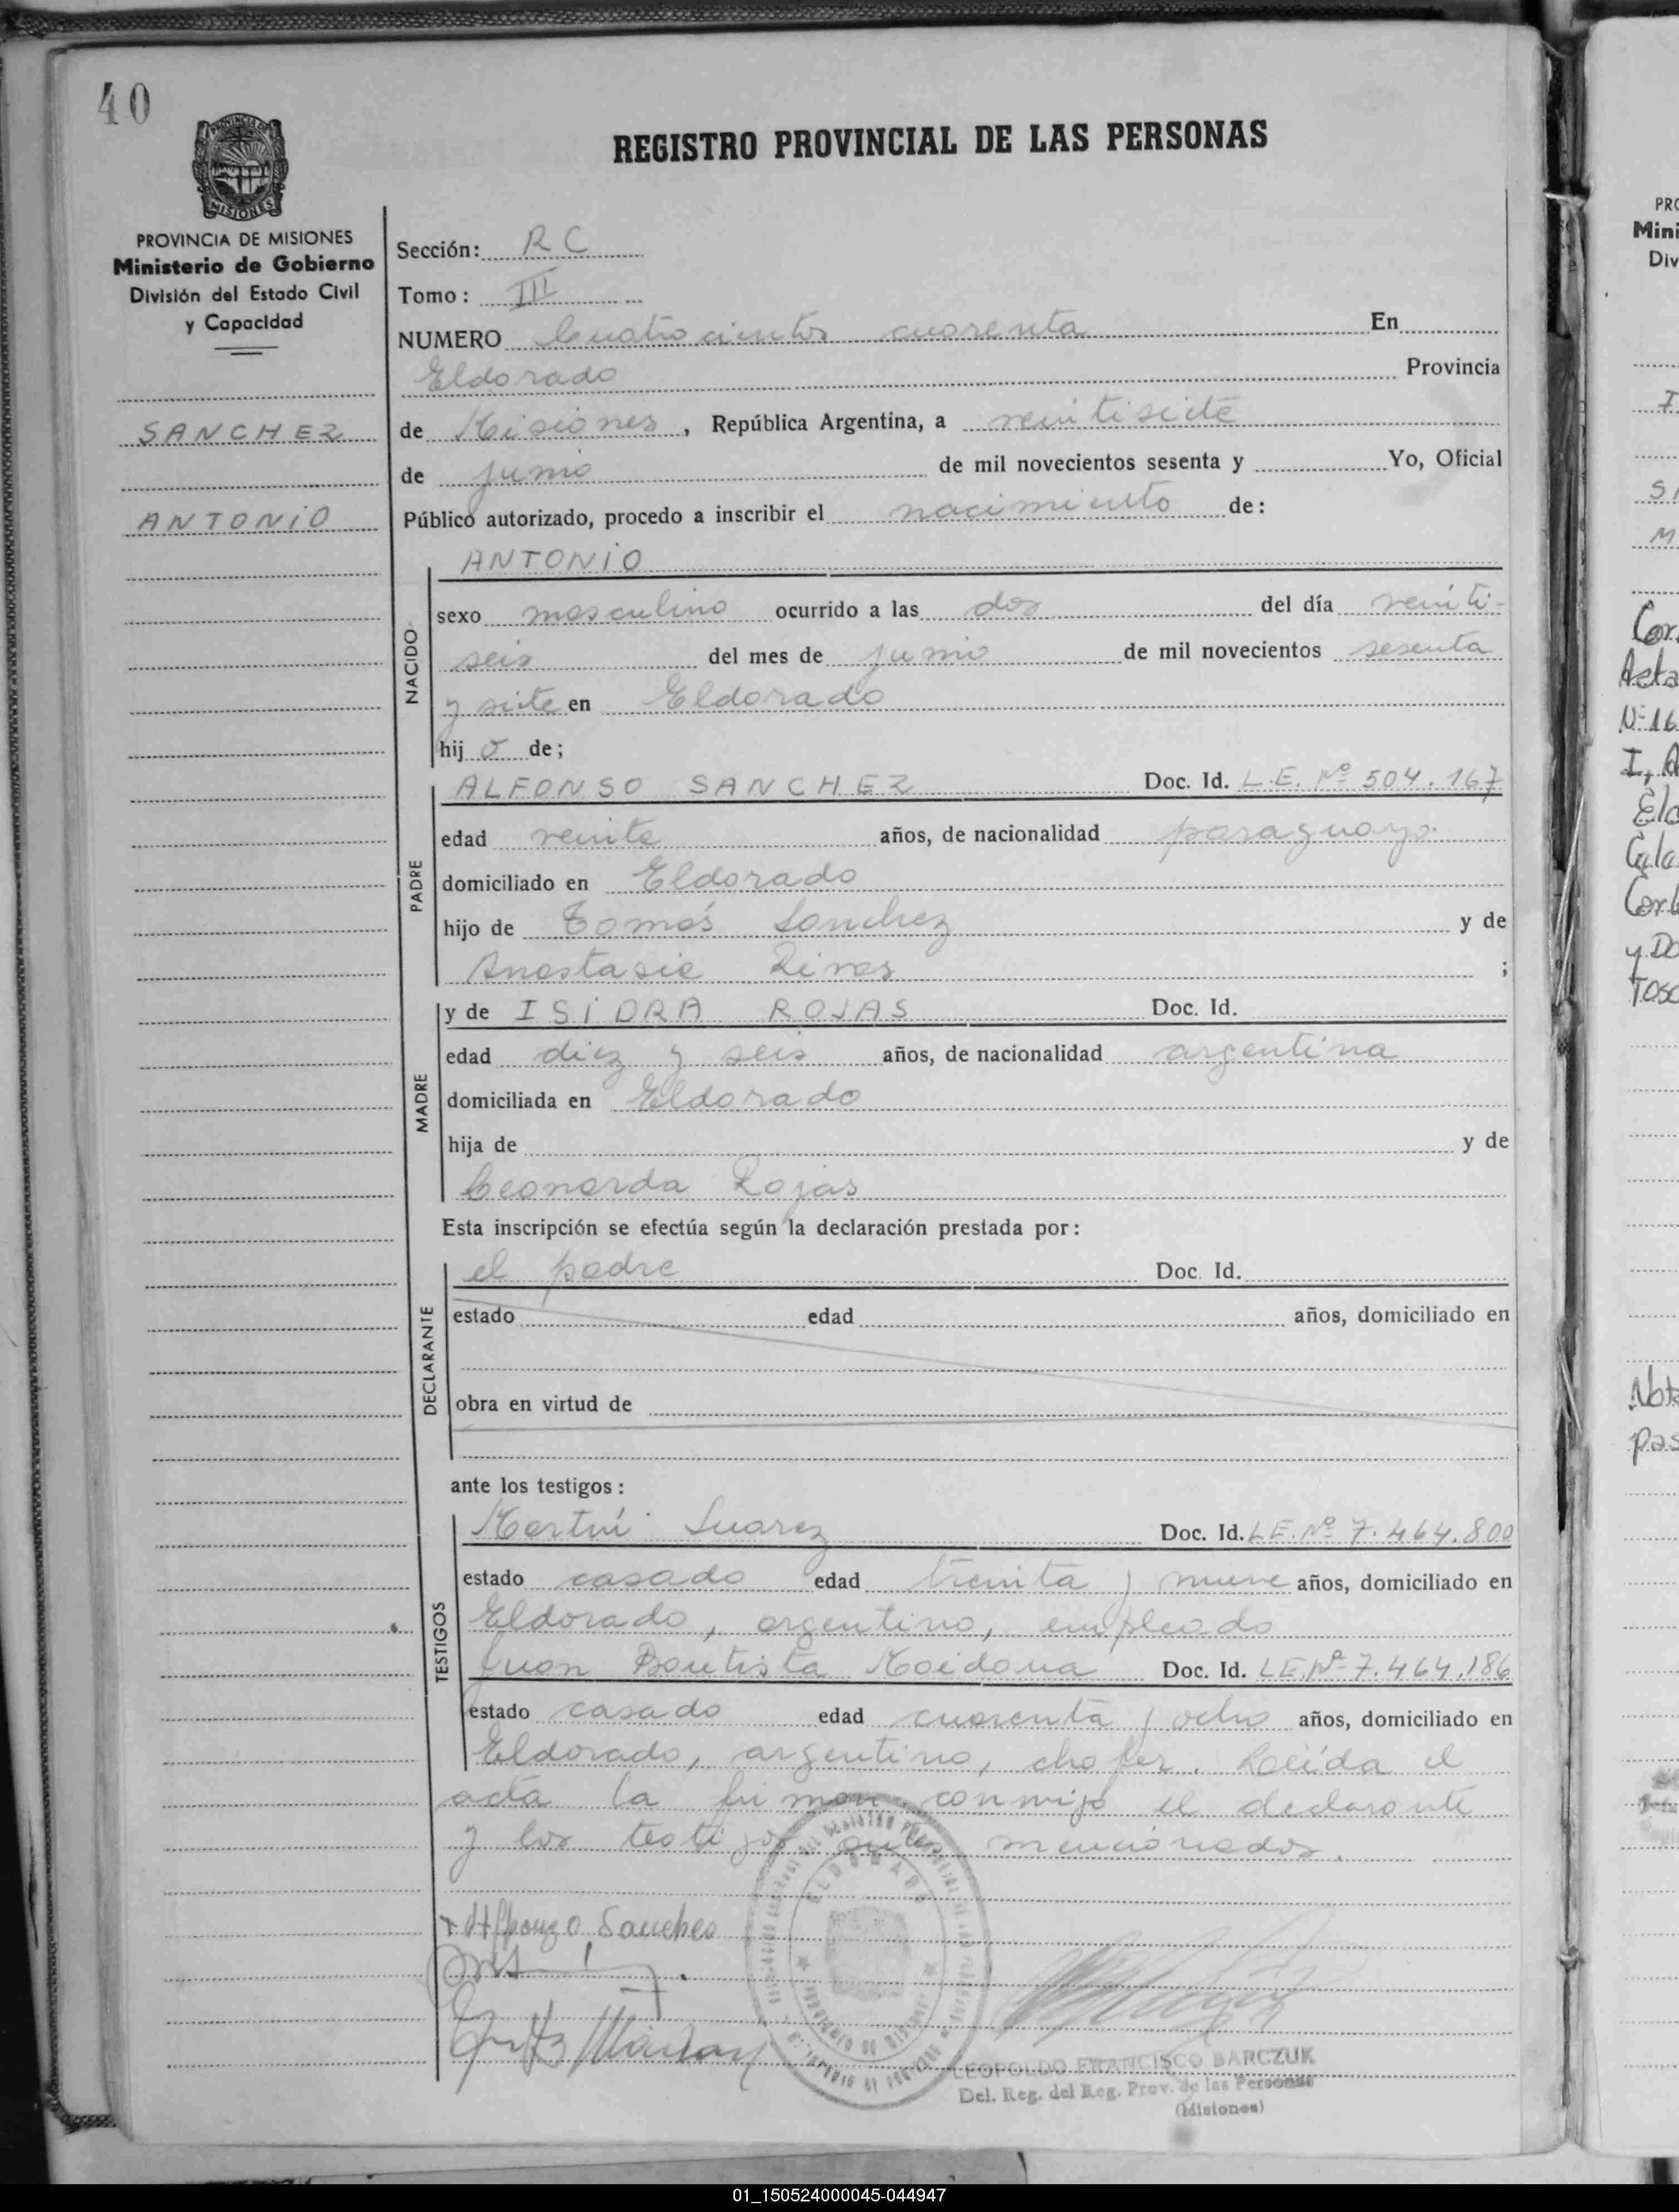 40
PROVINCIA DE
MISIONES
REGISTRO PROVINCIAL DE LAS PERSONAS
PROVINCIA DE MISIONES
Ministerio de Gobierno
División del Estado Civil
y Capacidad
SANCHEZ
ANTONIO
Sección: RC
Tomo: III
NUMERO Cuatrocientos cuarenta En
Eldorado Provincia
de Misiones, República Argentina, a veintisiete
de junio de mil novecientos sesenta y Yo, Oficial
Público autorizado, procedo a inscribir el nacimiento de:
NACIDO
ANTONIO
sexo masculino ocurrido a las dos del día veinti-
seis del mes de junio de mil novecientos sesenta
y siete en Eldorado
hijo de;
PADRE
ALFONSO SANCHEZ Doc. Id. L.E. Nº 504.167
edad veinte años, de nacionalidad paraguayo
domiciliado en Eldorado
hijo de Tomás Sanchez y de
Anastasia Rivas ;
MADRE
y de ISIDRA ROJAS Doc. Id.
edad diez y seis años, de nacionalidad argentina
domiciliada en Eldorado
hija de y de
Leonarda Rojas
Esta inscripción se efectúa según la declaración prestada por:
DECLARANTE
el padre Doc. Id.
estado edad años, domiciliado en
obra en virtud de
ante los testigos:
TESTIGOS
Martín Suarez Doc. Id. L.E. Nº 7.464.800
estado casado edad treinta y nueve años, domiciliado en
Eldorado, argentino, empleado
Juan Bautista Maidana Doc. Id. L.E. Nº 7.464.186
estado casado edad cuarenta y ocho años, domiciliado en
Eldorado, argentino, chofer. Leída el
acta la firman conmigo el declarante
y los testigos antes mencionados.
ELDORADO
LEOPOLDO FRANCISCO BARCZUK
Del. Reg. del Reg. Prov. de las Personas
(Misiones)
PRO
Mini
Div
Cor.
Acta
Nº 16
I, A
Eld
Cala
y Do
Tosc
Nota
pas
01_150524000045-044947